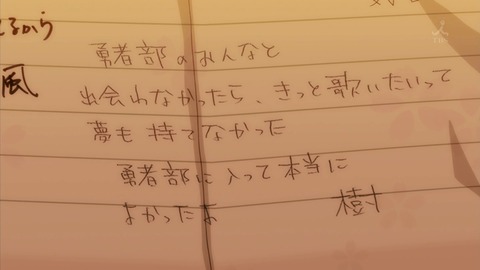 てるから
風
勇者部のみんなと
出会わなかったら、きっと歌いたいって
夢も持てなかった
勇者部に入って本当に
よかったよ
樹
TBS